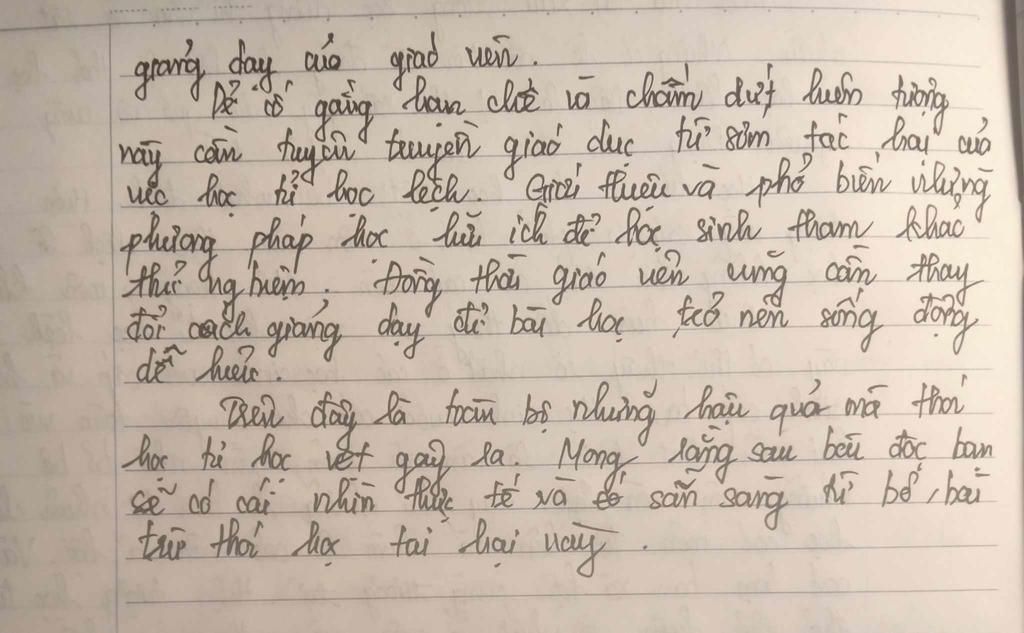 giảng dạy của giáo viên.
Để cố gắng hạn chế và chấm dứt hiện tượng
này cần tuyên truyền giáo dục từ sớm tác hại của
việc học tủ học lệch. Giới thiệu và phổ biến những
phương pháp học hữu ích để học sinh tham khảo
thử nghiệm. Đồng thời giáo viên cũng cần thay
đổi cách giảng dạy để bài học trở nên sống động
dễ hiểu.
Trên đây là toàn bộ những hậu quả mà thói
học tủ học vẹt gây ra. Mong rằng sau bài đọc bạn
sẽ có cái nhìn thực tế và sẵn sàng từ bỏ, bài
trừ thói học tai hại này.